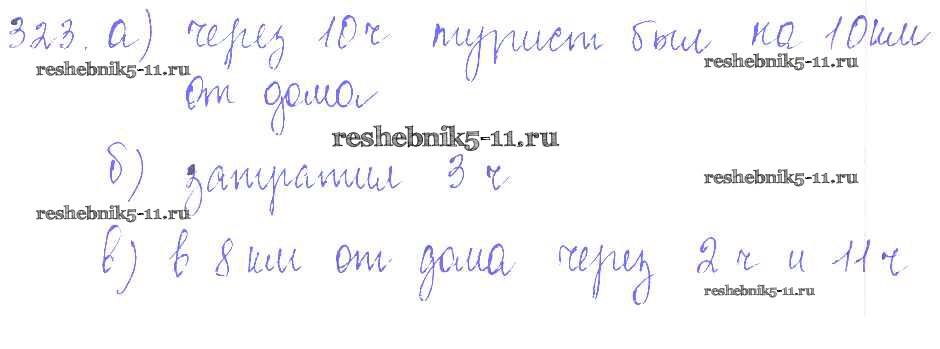 323. а) через 10ч турист был на 10км
reshebnik5-11.ru
reshebnik5-11.ru
от дома
reshebnik5-11.ru
б) затратил 3 ч
reshebnik5-11.ru
reshebnik5-11.ru
в) в 8 км от дома через 2 ч и 11 ч
reshebnik5-11.ru